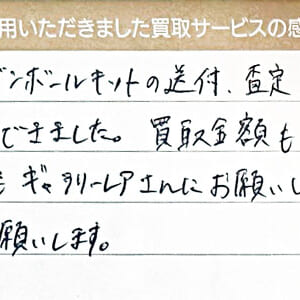 用いただきました買取サービスの感
ダンボールキットの送付、査定
できました。買取金額も
も ギャラリーレアさんにお願いし
願いします。